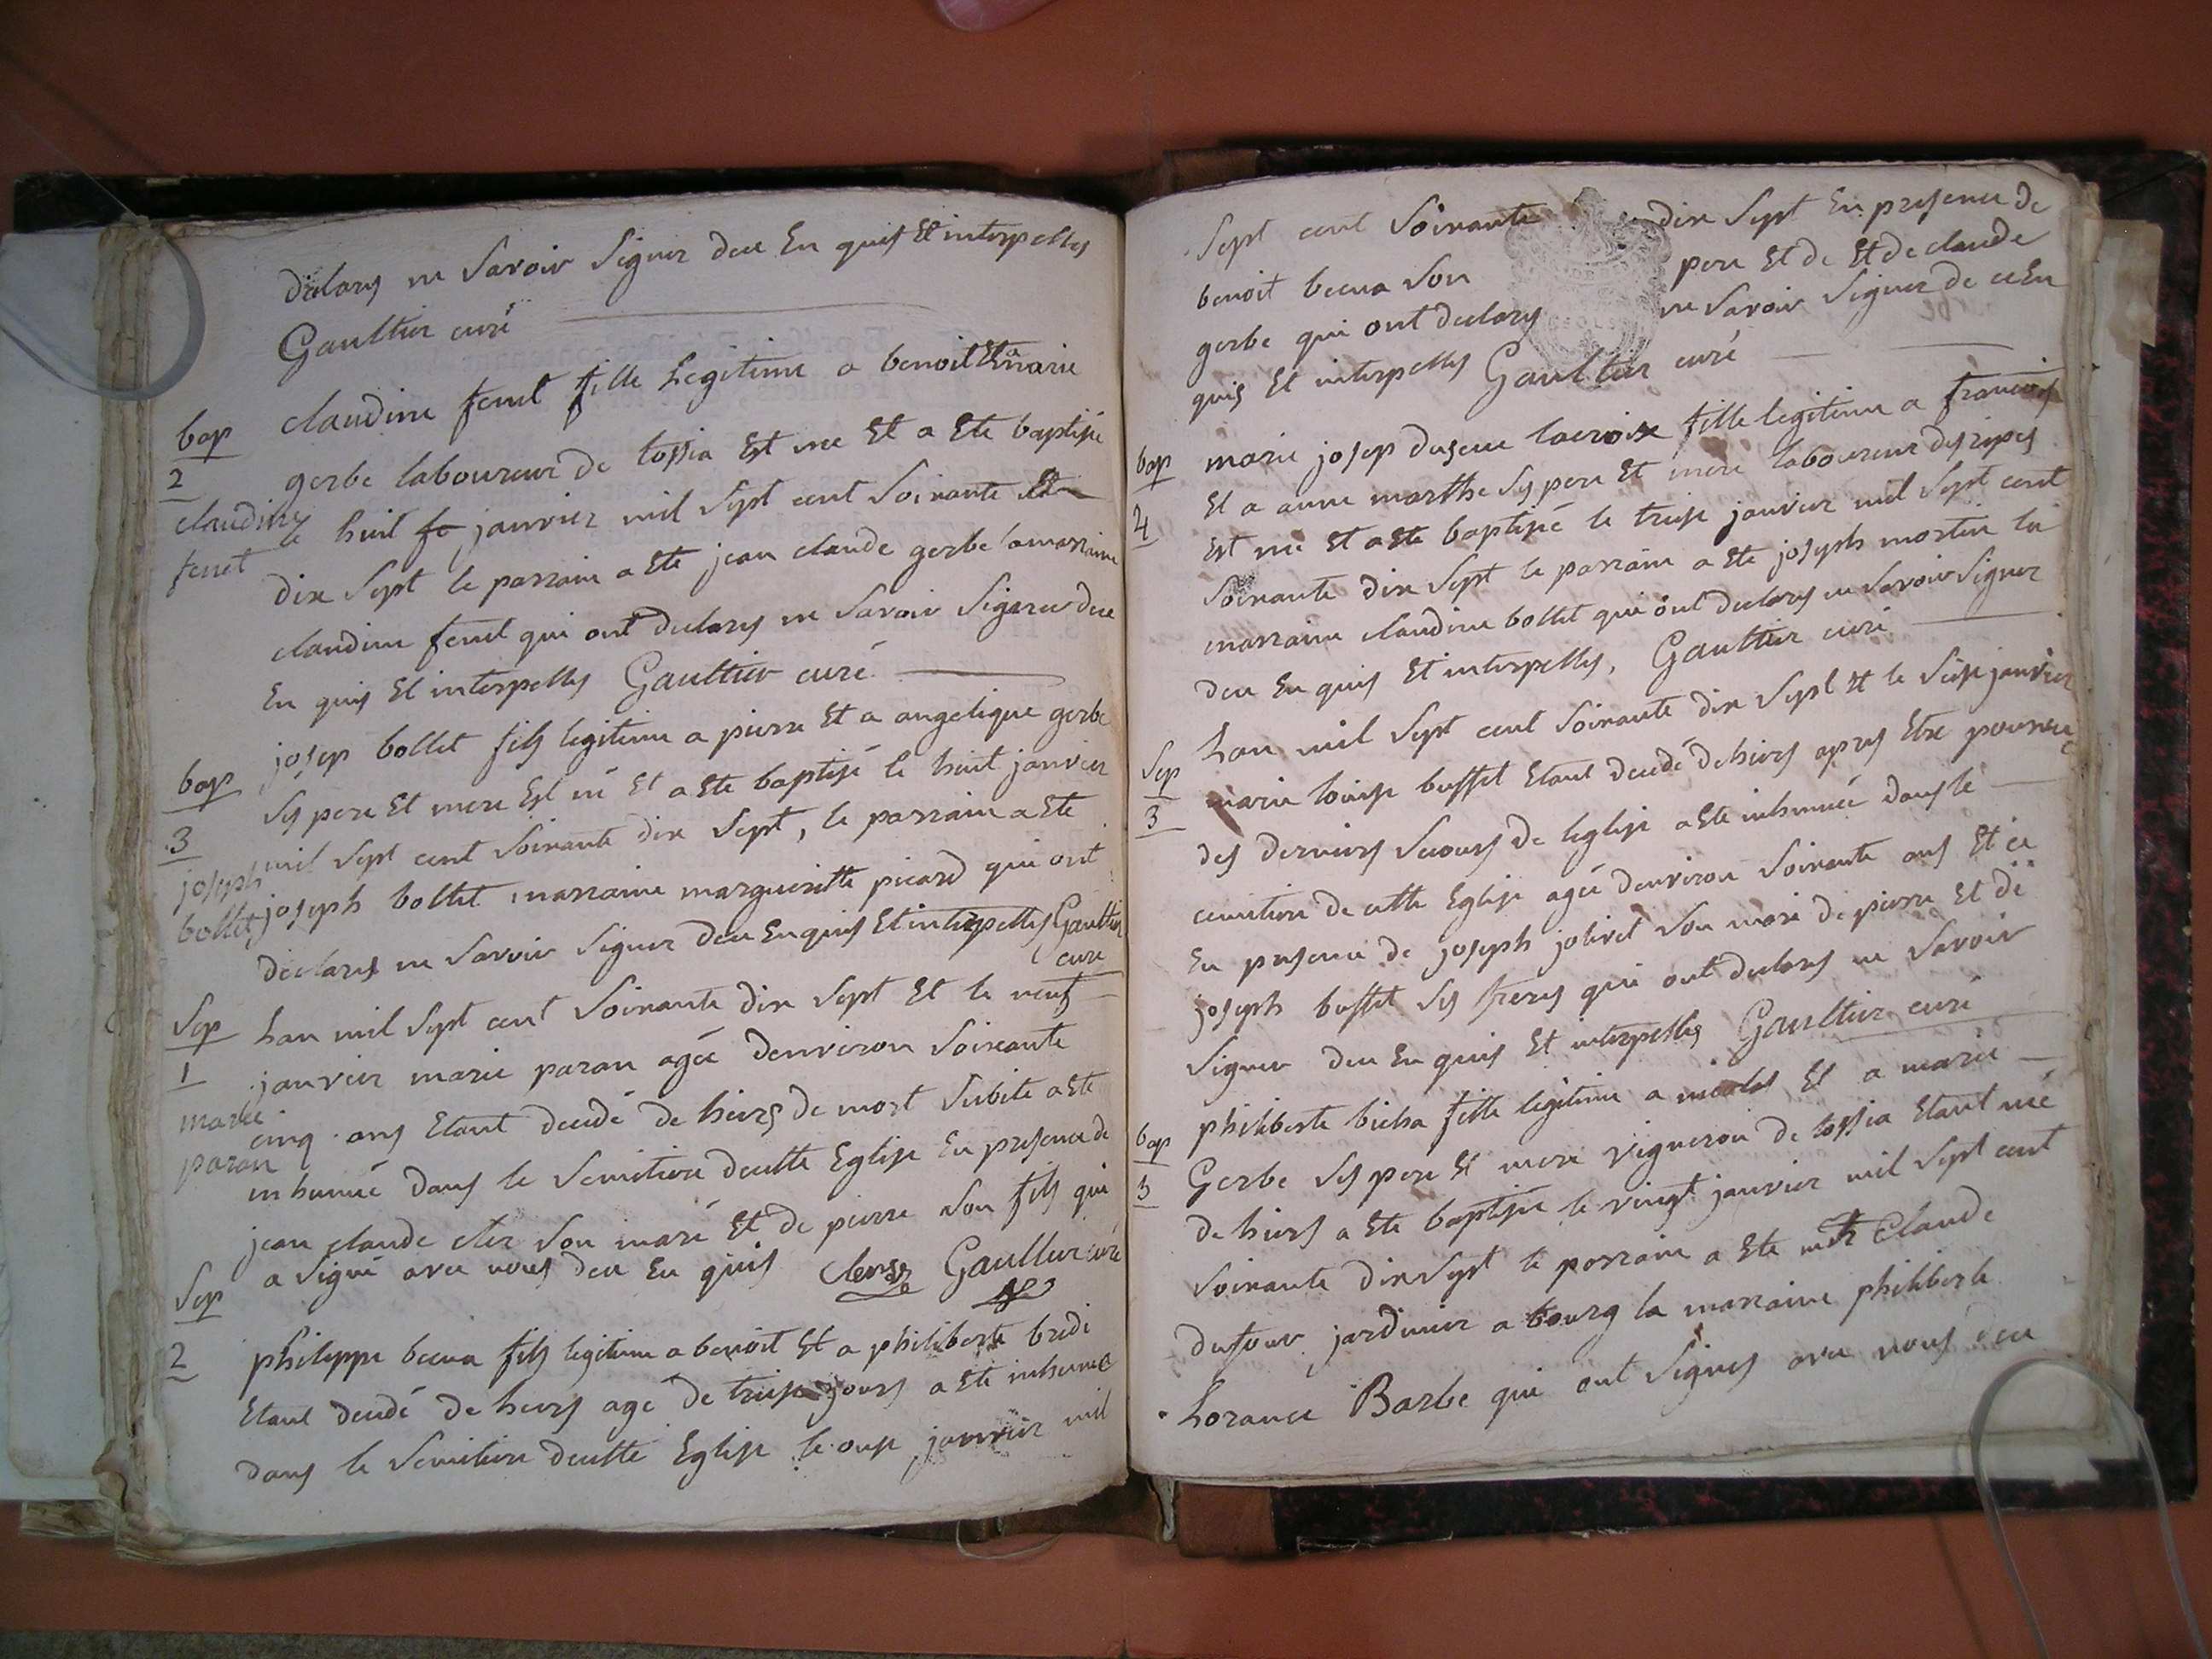 declarés ne savoir signer de ce Enquis Et interpellés
Gaultier curé
bap claudine ferret fille Legitime a benoit Et a marie
2 gerbe laboureur de tossia Est née Et a Eté baptisée
claudine le huit janvier mil sept cent soixante Et
ferret dix sept le parrain a Eté jean claude gerbe la marraine
claudine ferret qui ont declarés ne savoir signer de ce
En quis Et interpellés Gaultier curé
bap josep bollet fils legitime a pierre Et a angelique gerbe
3 ses pere Et mere Est né Et a Eté baptisé le huit janvier
joseph mil sept cent soixante dix sept, le parrain a Eté
bollet joseph bollet marraine margueritte picard qui ont
declarés ne savoir signer de ce Enquis Et interpellés Gaultier
curé
Sep Lan mil sept cent soixante dix sept Et le neuf
1 janvier marie paran agée denviron soixante
marie cinq ans Etant decedé de hiers de mort subite a Eté
paran inhumée dans le semitiere de cette Eglise En presence de
jean claude cler son mari Et de pierre son fils qui
a signé avec nous de ce En quis clerc Gaultier curé
Sep
2 philippe becua fils legitime a benoit Et a philiberte bredi
Etant decedé de hiers agé de treise jours a Eté inhumé
dans le semitiere de cette Eglise le onse janvier mil
sept cent soixante dix sept En presence de
benoit becua son pere Et de Et de claude
gerbe qui ont declarés ne savoir signer de ce En
quis Et interpellés Gaultier curé
bap marie josep lacroix fille legitime a francois
4 Et a anne marthe ses pere Et mere laboureur des ripes
Est née Et a Eté baptisée le treise janvier mil sept cent
soixante dix sept le parrain a Eté joseph martin la
marraine claudine bollet qui ont declarés ne savoir signer
de ce En quis Et interpellés, Gaultier curé
Sep Lan mil sept cent soixante dix sept Et le seise janvier
3 marie louise buffet Etant decedé de hiers apres Etre pourvue
des derniers secours de leglise a Eté inhumée dans le
cemitiere de cette Eglise agée denviron soixante ans Et ce
En presence de joseph jolivet son mari de pierre Et de
joseph buffet ses freres qui ont declarés ne savoir
signer de ce En quis Et interpellés Gaultier curé
bap philiberte bicha fille legitime a nicolas Et a marie
5 Gerbe ses pere Et mere vigneron de tossia Etant née
de hiers a Eté baptisée le vingt janvier mil sept cent
soixante dix sept le parrain a Eté Claude
dufour jardinier a bourg la marraine philiberte
Lorance Barbe qui ont signés avec nous ce